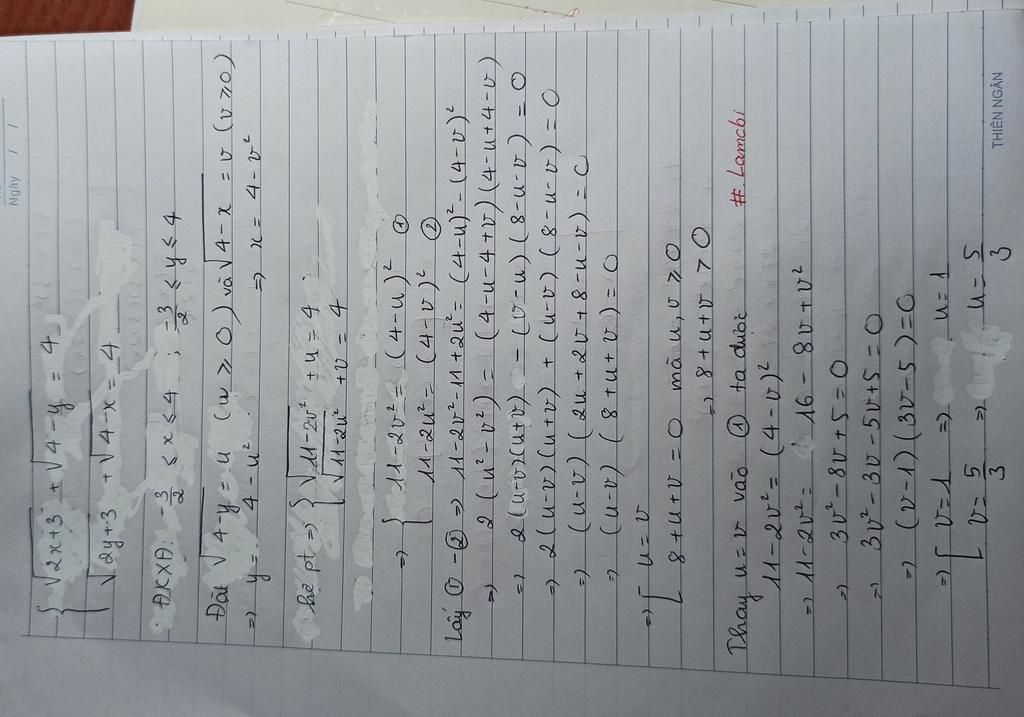 Ngày / /
{ √2x+3 + √4-y = 4
√2y+3 + √4-x = 4
ĐKXĐ: -3/2 ≤ x ≤ 4 ; -3/2 ≤ y ≤ 4
Đặt √4-y = u (u ≥ 0) và √4-x = v (v ≥ 0)
=> y = 4-u² => x = 4-v²
hệ pt => { √11-2v² + u = 4
√11-2u² + v = 4
=> { 11-2v² = (4-u)² ①
11-2u² = (4-v)² ②
Lấy ① - ② => 11-2v²-11+2u² = (4-u)² - (4-v)²
=> 2(u²-v²) = (4-u-4+v)(4-u+4-v)
=> 2(u-v)(u+v) - (v-u)(8-u-v) = 0
=> 2(u-v)(u+v) + (u-v)(8-u-v) = 0
=> (u-v)(2u+2v+8-u-v) = 0
=> (u-v)(8+u+v) = 0
=> [ u=v
8+u+v = 0 mà u,v ≥ 0
=> 8+u+v > 0
Thay u=v vào ① ta được #.Lamcbi
11-2v² = (4-v)²
=> 11-2v² = 16-8v+v²
=> 3v²-8v+5=0
=> 3v²-3v-5v+5=0
=> (v-1)(3v-5)=0
=> [ v=1 => u=1
v=5/3 => u=5/3
THIÊN NGÂN